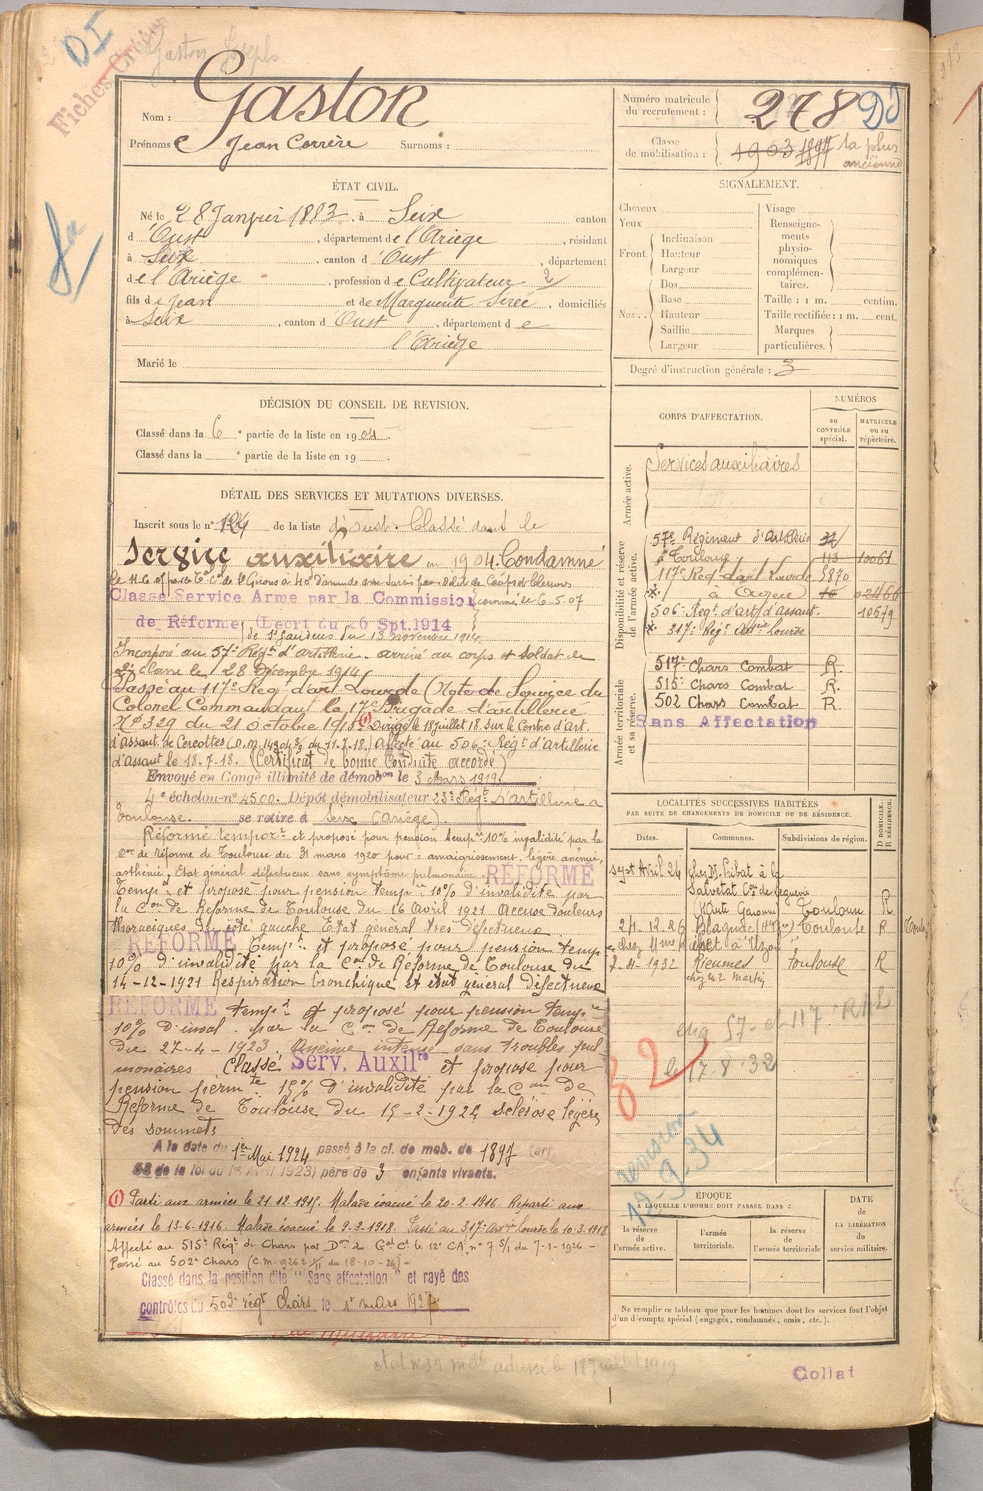 DI
Fiches
Gaston Joseph
Nom : Gaston
Prénoms Jean Corrère Surnoms :
ÉTAT CIVIL.
Né le 28 Janvier 1883, à Seix canton
d'Oust, département de l'Ariège, résidant
à Seix, canton d'Oust, département
de l'Ariège, profession de Cultivateur 2
fils de Jean et de Marguerite Serée, domiciliés
à Seix, canton d'Oust, département de
l'Ariège
Marié le
DÉCISION DU CONSEIL DE REVISION.
Classé dans la 6e partie de la liste en 1904.
Classé dans la e partie de la liste en 19
DÉTAIL DES SERVICES ET MUTATIONS DIVERSES.
Inscrit sous le n° 124 de la liste d'Oust. Classé dans le
Service auxiliaire en 1904. Condamné
Classé Service Armé par la Commission
de Réforme (Décret du 26 Spt. 1914
de St Gaudens du 13 novembre 1914
Incorporé au 57e Rég't d'Artillerie. arrivé au corps et soldat de
2e classe le 28 Décembre 1914
Passé au 117e Rég' d'art' Lourde (Note de Service du
Colonel Commandant la 17e Brigade d'artillerie
N° 329 du 21 Octobre 1915 (1) Dirigé le 18 juillet 18 sur le Centre d'Art.
d'Assaut de Cercottes Affecté au 506e Régt d'Artillerie
d'assaut le 18-7-18. (Certificat de bonne Conduite accordé)
Envoyé en Congé illimité de démobon le 3 Mars 1919
4e échelon n° 4500. Dépôt démobilisateur 23e Régt d'artillerie à
Toulouse. se retire à Seix (Ariège)
Réformé tempor' et proposé pour pension temp're 10% invalidité par la
Con de Réforme de Toulouse du 31 mars 1920 pour : amaigrissement, légère anémie,
asthénie, Etat général défectueux sans symptôme pulmonaire RÉFORMÉ
Temp' et proposé pour pension temp're 10% d'invalidité par
la Con de Réforme de Toulouse du 16 Avril 1921 Accuse douleurs
thoraciques du côté gauche Etat général très défectueux
RÉFORMÉ Temp' et proposé pour pension temp
10% d'invalidité par la Con de Réforme de Toulouse du
14-12-1921 Respiration bronchique et état général défectueux
RÉFORMÉ temp' et proposé pour pension temp're
10% d'inval. par la Con de Réforme de Toulouse
du 27-4-1923 Anémie intense sans troubles pul
monaires Classé Serv. Auxilre et proposé pour
pension permte 15% d'invalidité par la Con de
Réforme de Toulouse du 15-2-1924 sclérose légère
des sommets
A la date du 1er Mai 1924 passé à la cl. de mob. de 1897 (art
58 de la loi du 1er Avril 1923) père de 3 enfants vivants.
(1) Parti aux armées le 21.12.1915. Malade évacué le 20-2-1916. Reparti aux
armées le 13-6-1916. Malade évacué le 9-3-1918. Passé au 317e Art'ie Lourde le 10-3-1918
Affecté au 515e Rég' de Chars par Don du Gal Ct le 12e CA. n° 7 S/1 du 7-1-1926 -
Passé au 502e Chars (C.M. 9262 du 18-10-26) -
Classé dans la position dite "Sans affectation" et rayé des
contrôles du 502e rég't Chars le 1er mars 1927
Numéro matricule du recrutement : 278 DI
Classe de mobilisation : 1903 1897 la plus ancienne
SIGNALEMENT.
Cheveux
Yeux
Front. Inclinaison
Hauteur
Largeur
Nez. Dos
Base
Hauteur
Saillie
Largeur
Visage
Renseignements physionomiques complémentaires.
Taille : 1 m. centim.
Taille rectifiée : 1 m. cent.
Marques particulières.
Degré d'instruction générale : 3
CORPS D'AFFECTATION.
NUMÉROS
au CONTRÔLE spécial.
MATRICULE ou au répertoire.
Armée active.
Services auxiliaires
Disponibilité et réserve de l'armée active.
57e Régiment d'Artillerie
à Toulouse 113 10061
117e Rég' d'art Lourde 5870
506e Régt d'art d'assaut. 10679
317e Régt Artie Lourde
Armée territoriale et sa réserve.
517e Chars Combat R.
515e Chars Combat R.
502 Chars Combat R.
Sans Affectation
LOCALITÉS SUCCESSIVES HABITÉES
PAR SUITE DE CHANGEMENTS DE DOMICILE OU DE RÉSIDENCE.
Dates. Communes. Subdivisions de région.
D. DOMICILE. R. RÉSIDENCE.
Avril 24 chez M. Pibat à la
Salvetat
Haute Garonne Toulouse R
24.12.26 Blagnac Toulouse R
1932 Rieumes Toulouse R
chez Me Martin
57 et 117
le 17-8-32
32
révision
12-9-34
ÉPOQUE
À LAQUELLE L'HOMME DOIT PASSER DANS :
la réserve de l'armée active.
l'armée territoriale.
la réserve de l'armée territoriale
DATE de LA LIBÉRATION du service militaire.
Ne remplir ce tableau que pour les hommes dont les services font l'objet
d'un décompte spécial (engagés, condamnés, omis, etc.).
Collat